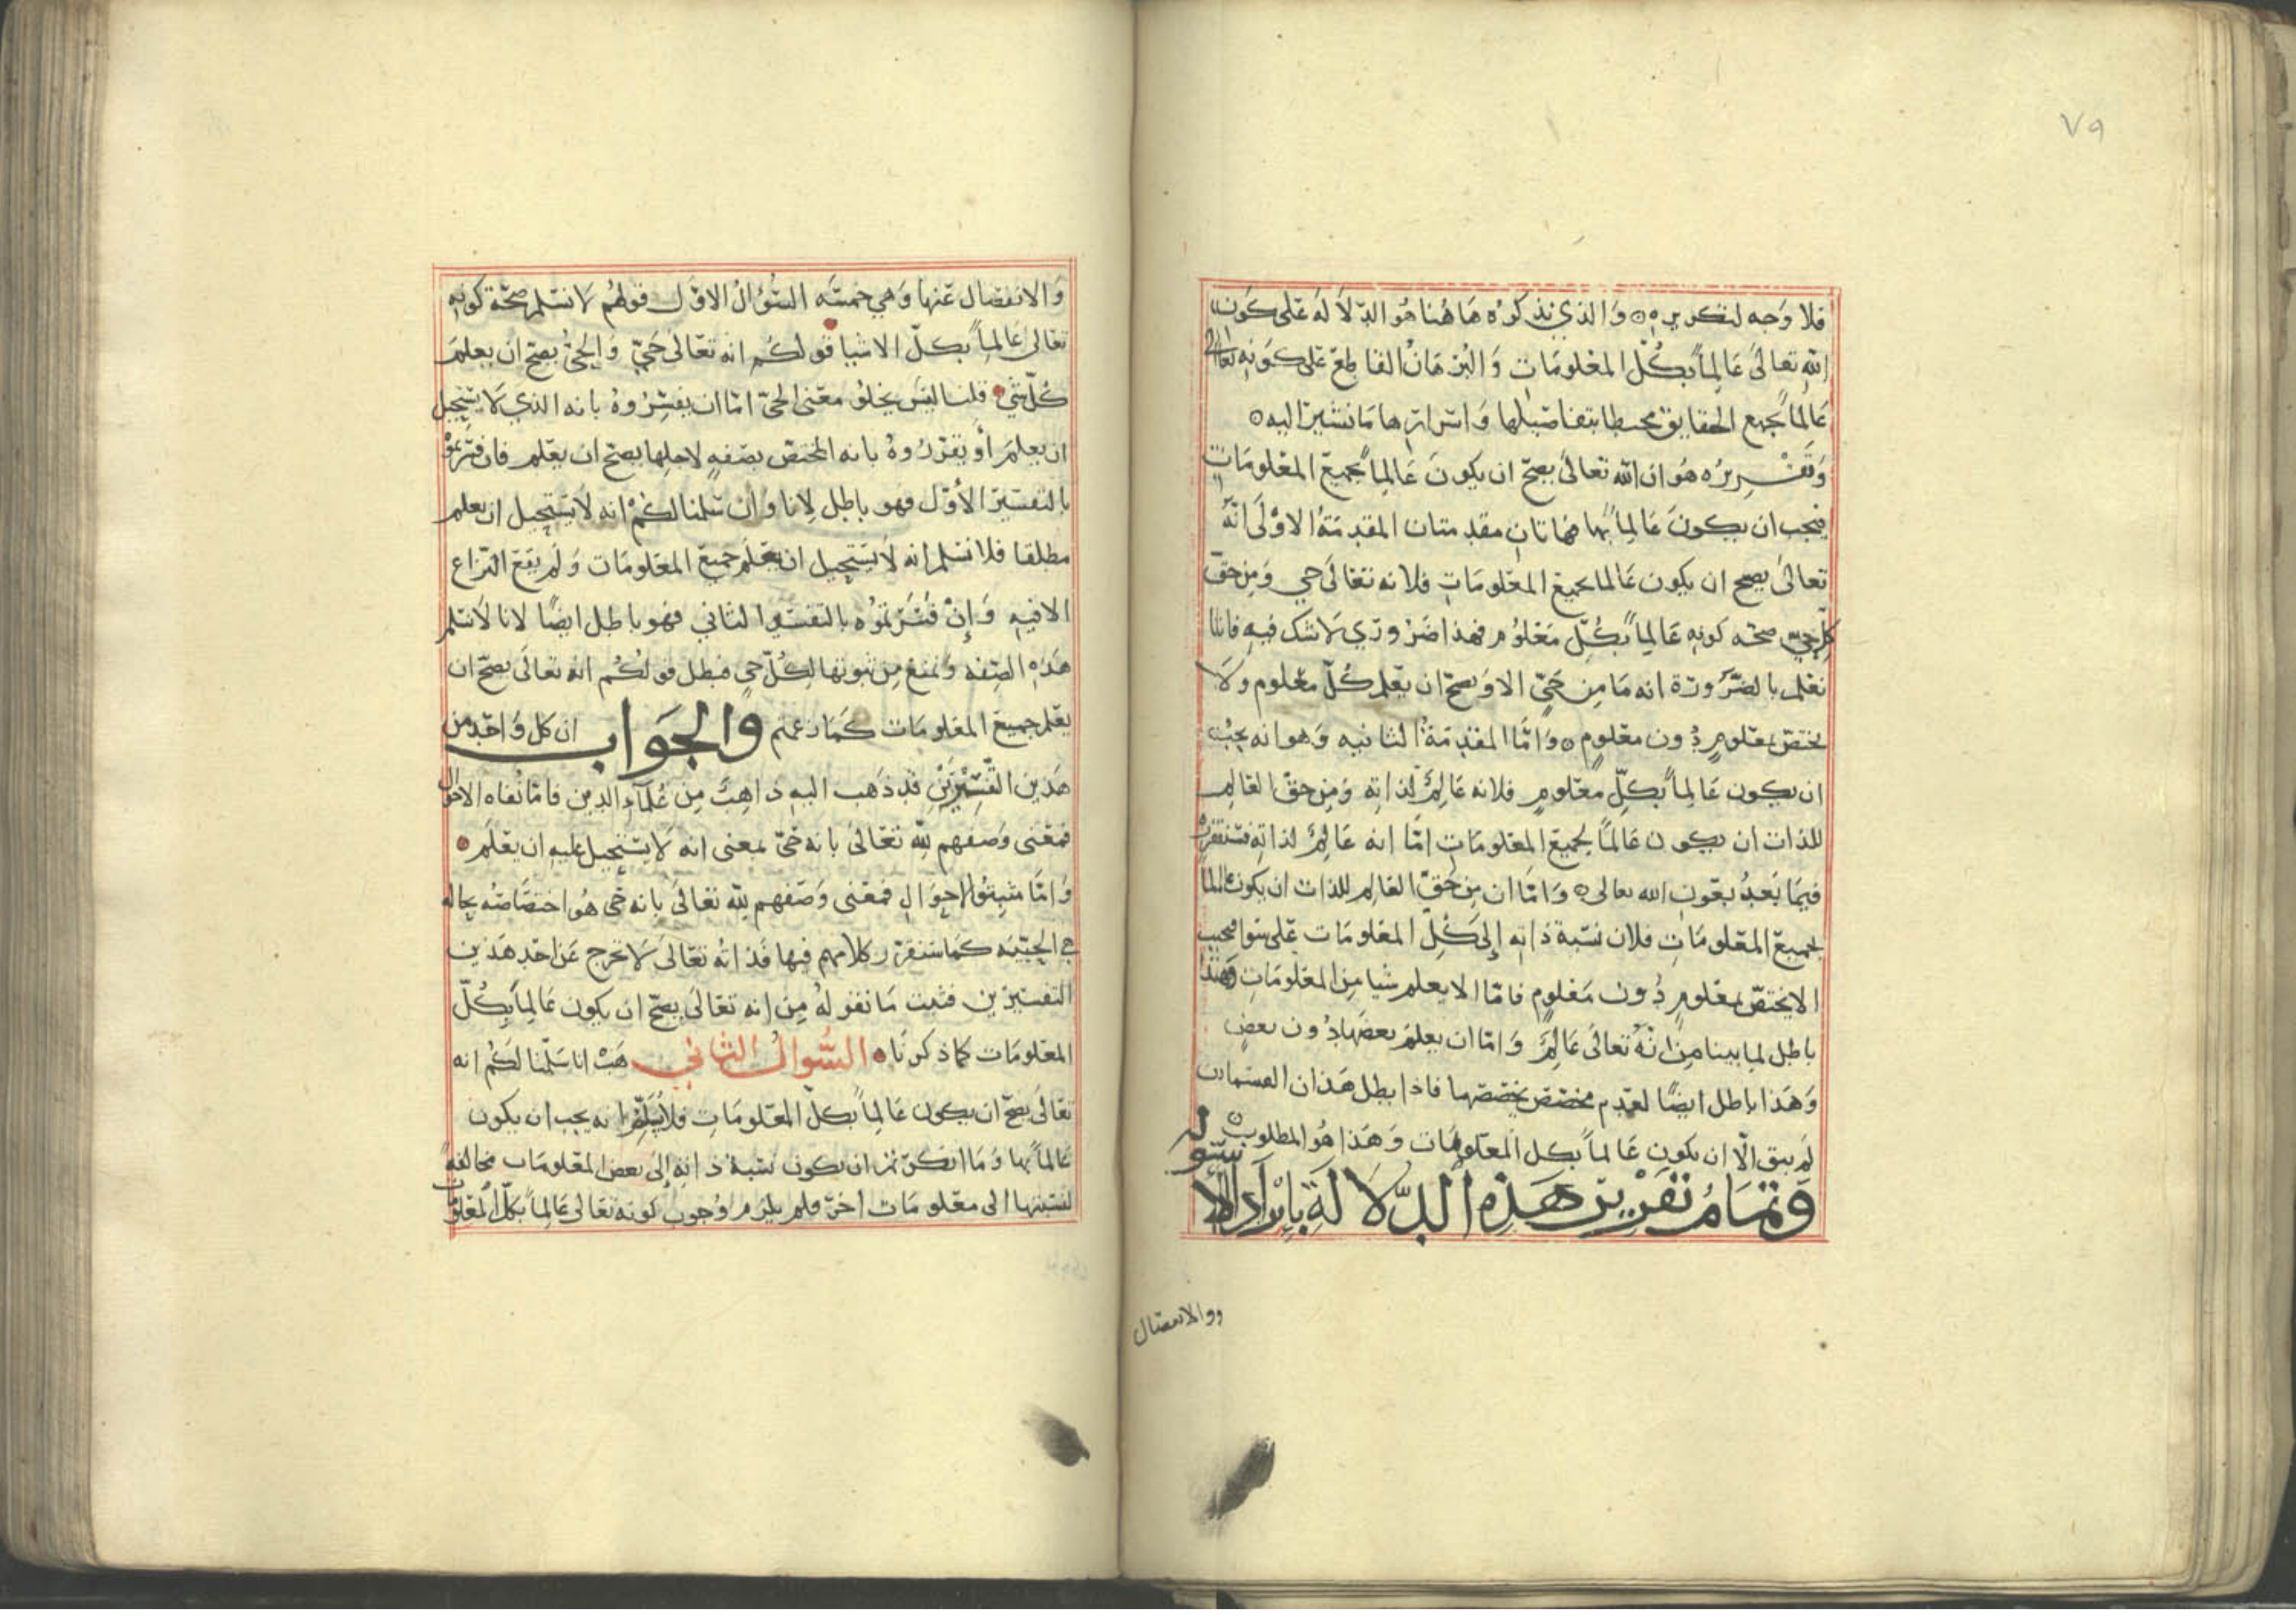 ٧٩
فلا وجه لتكريره ۞ والذي نذكره هاهنا هو الدلالة على كون
الله تعالى عالماً بكل المعلومات والبرهان القاطع على كونه تعالى
عالماً بجميع الحقايق محيطا بتفاصيلها واسرارها ما نشير اليه ۞
وتقريره هو ان الله تعالى يصح ان يكون عالماً بجميع المعلومات
فيجب ان يكون عالماً بها فهاتان مقدمتان المقدمة الاولى انه
تعالى يصح ان يكون عالما بجميع المعلومات فلانه تعالى حي ومن حق
كل حي صحه كونه عالماً بكل معلوم فهذا ضروري لا شك فيه فاننا
نعلم بالضرورة انه ما من حي الا ويصح ان يعلم كل معلوم ولا
يختص بمعلوم دون معلوم ۞ واما المقدمة الثانيه وهو انه يجب
ان يكون عالماً بكل معلوم فلانه عالم لذاته ومن حق العالم
للذات ان يكون عالماً بجميع المعلومات امّا انه عالم لذاته فسنقرره
فيما بعد بعون الله تعالى ۞ واما ان من حق العالم للذات ان يكون عالما
بجميع المعلومات فلان نسبة ذاته إلى كل المعلومات على سوا فيجب
الا يختص بمعلوم دون معلوم فامّا الا يعلم شيا من المعلومات وهذا
باطل لما بينا من انه تعالى عالم واما ان يعلم بعضها دون بعض
وهذا باطل ايضاً لعدم مخصص يخصصها فاذا بطل هذان القسمان
لم يبق الّا ان يكون عالماً بكل المعلومات وهذا هو المطلوب ۞
وتمام تقرير هذه الدلالة بايراد الأسئوله
ووالانفصال
والانفصال عنها وهي خمسه السؤال الاول قولهم لا نسلم صحة كونه
تعالى عالماً بكل الاشيا قولكم انه تعالى حي والحي يصح ان يعلم
كل شي قلنا ليس يخلو معنى الحي امّا ان يفسروه بانه الذي لا يستحيل
ان يعلم أو يقرروه بانه المختص بصفه لاجلها يصح ان يعلم فان فسرتموه
بالتفسير الأول فهو باطل لانا وان سلمنا لكم انه لا يستحيل ان يعلم
مطلقا فلا نسلم انه لا يستحيل ان يعلم جميع المعلومات ولم يقع النزاع
الا فيه وإن فسرتموه بالتفسير الثاني فهو باطل ايضاً لانا لا نسلم
هذه الصفه ونمنع من ثبوتها لكل حي فبطل قولكم انه تعالى يصح ان
يعلم جميع المعلومات كما زعمتم والجواب ان كل واحد من
هذين التفسيرين قد ذهب اليه ذاهب من علماء الدين فاما نفاه الاحوال
فمعنى وصفهم لله تعالى بانه حي بمعنى انه لا يستحيل عليه ان يعلم
وامّا مثبتوا الاحوال فمعنى وصفهم لله تعالى بانه حي هو اختصاصه بحاله
هي الحييه كما سنقرر كلامهم فيها فذاته تعالى لا تخرج عن احد هذين
التفسيرين فثبت ما نقوله من انه تعالى يصح ان يكون عالماً بكل
المعلومات كما ذكرنا السؤال الثاني هب انا سلمنا لكم انه
تعالى يصح ان يكون عالماً بكل المعلومات فلم انه يجب ان يكون
عالماً بها وما انكرتم ان يكون نسبة ذاته إلى بعض المعلومات مخالفة
لنسبتها الى معلومات اخر فلم يلزم وجوب كونه تعالى عالماً بكل المعلومات